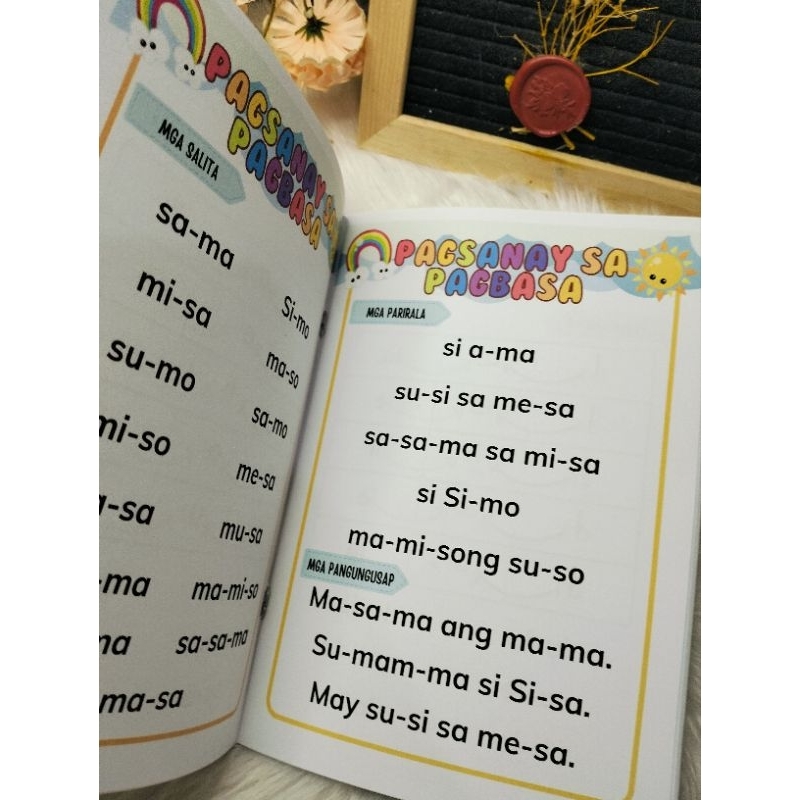 PAGSANAY SA
PAGBASA
MGA SALITA
sa-ma
mi-sa
Si-mo
su-mo
ma-so
mi-so
sa-mo
me-sa
mu-sa
ma-mi-so
sa-sa-ma
ma-sa
PAGSANAY SA
PAGBASA
MGA PARIRALA
si a-ma
su-si sa me-sa
sa-sa-ma sa mi-sa
si Si-mo
ma-mi-song su-so
MGA PANGUNGUSAP
Ma-sa-ma ang ma-ma.
Su-mam-ma si Si-sa.
May su-si sa me-sa.